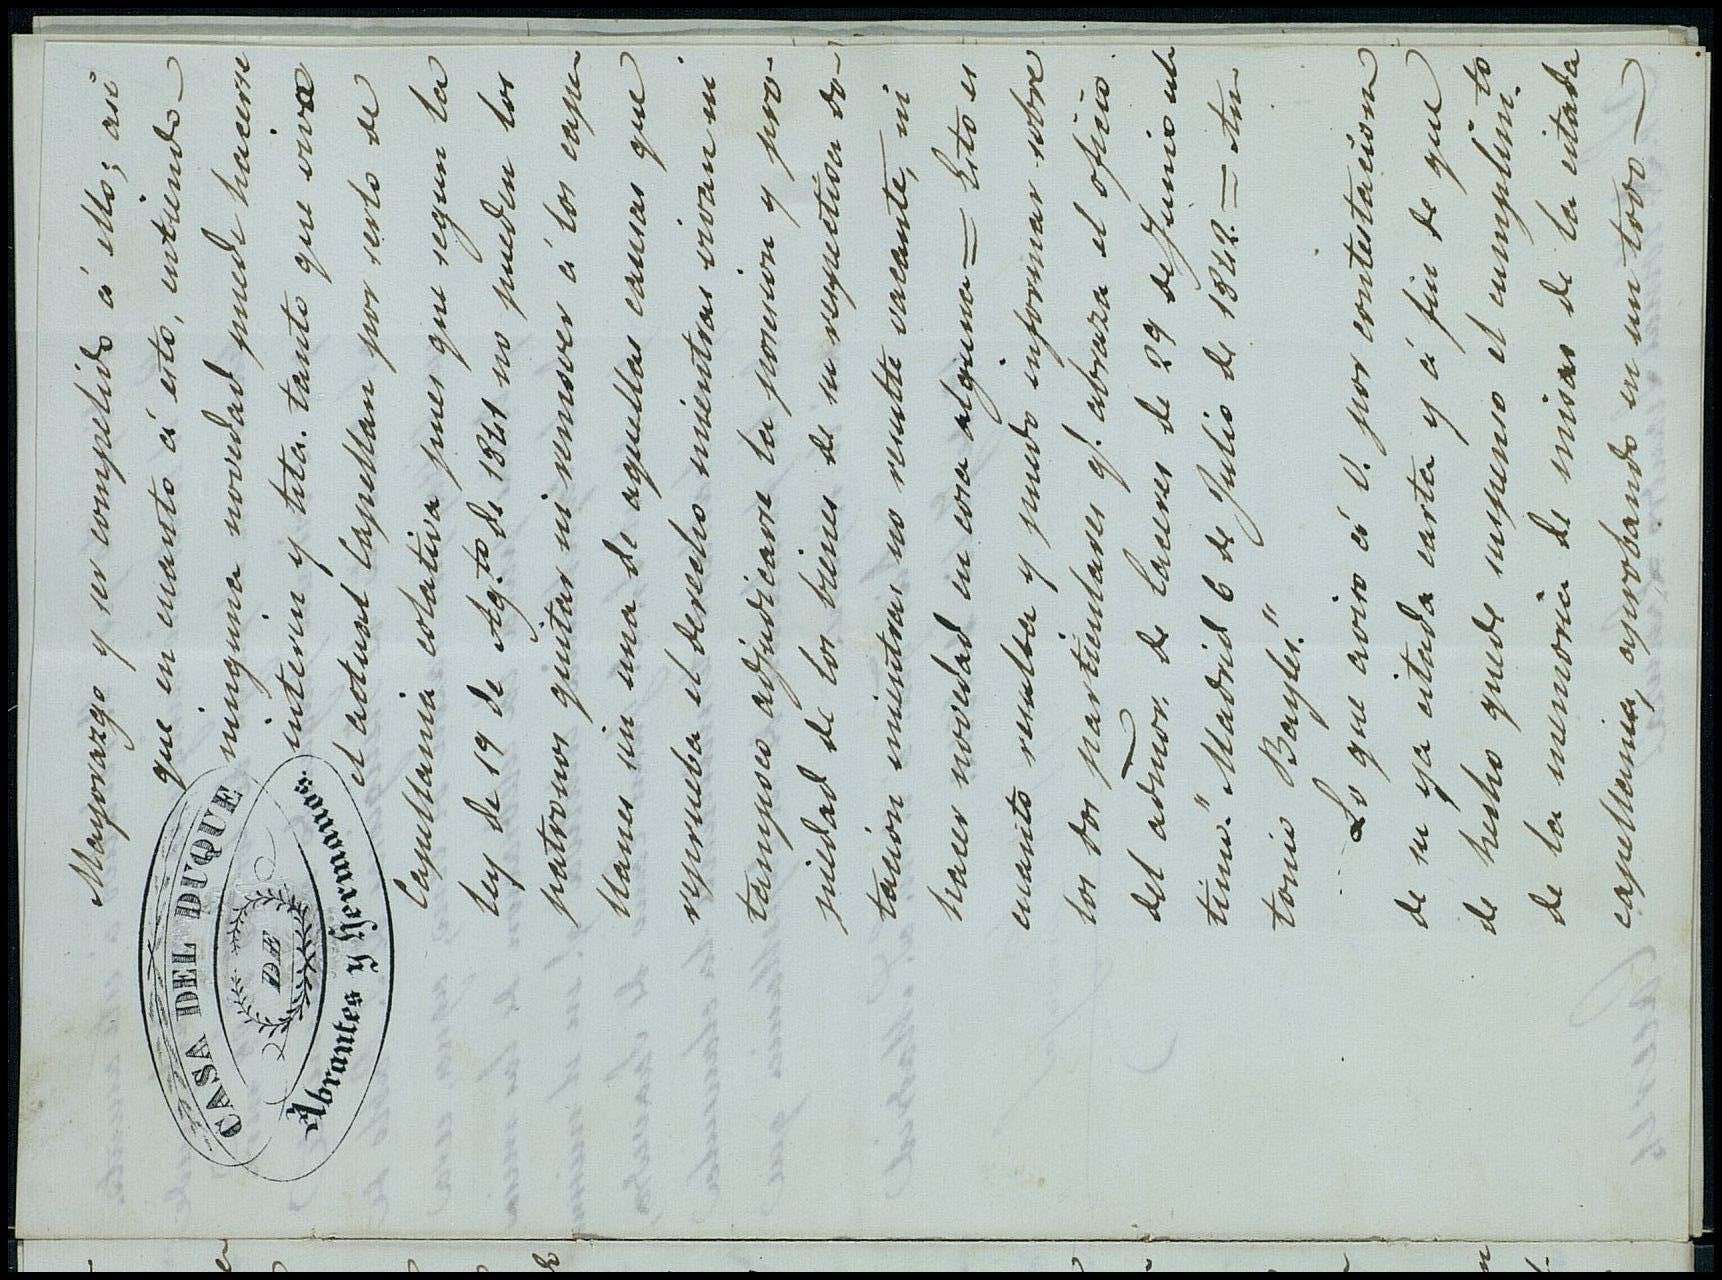 CASA DEL DUQUE
DE
Abrantes y Hermanos
Mayorazgo y ser compelido á ello; asi
que en cuanto á esto, entiendo
ninguna novedad puede hacerse
interin y tanto que viva
el actual Capellan por serlo de
Capellania colativa pues que segun la
ley de 19 de Ag.to de 1841 no pueden los
patronos quitar ni remover á los cape
llanes sin una de aquellas causas que
reprueba el derecho mientras vivan ni
tampoco adjudicarse la porcion y pro-
piedad de los bienes de su respectiva do-
tacion mientras no resulte vacante, ni
hacer novedad en cosa alguna = Esto es
cuanto resulta y puedo informar sobre
los dos particulares q.e abraza el oficio
del admor. de Caceres de 29 de Junio ul
timo." Madrid 6 de Julio de 1842. = An
tonio Bayles."
Lo que aviso á V. por contestacion
de su ya citada carta y á fin de que
de hecho quede suspenso el cumplim.to
de la memoria de misas de la citada
capellania, aprobando en un todo